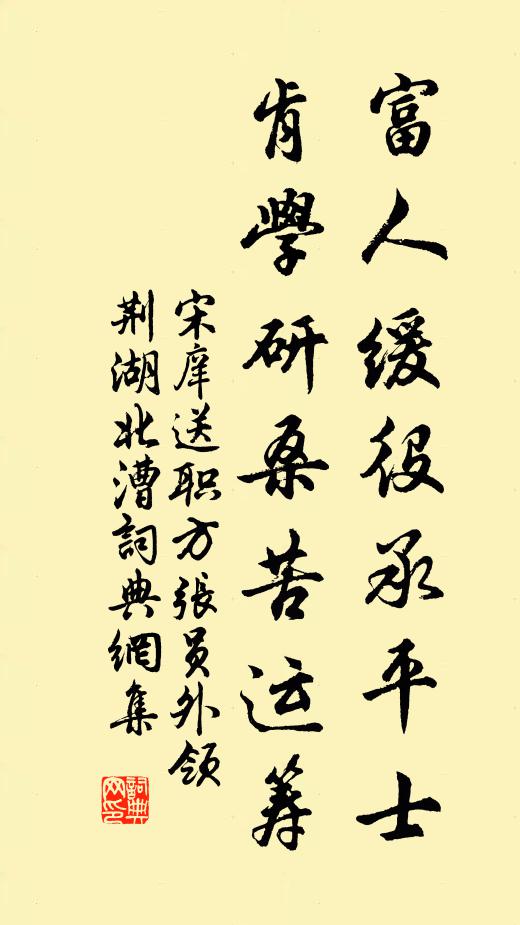 富人缓役承平士
肯學研桑苦运筹
宋庠送职方張员外领
荆湖北漕詞典網集
詞典
网印